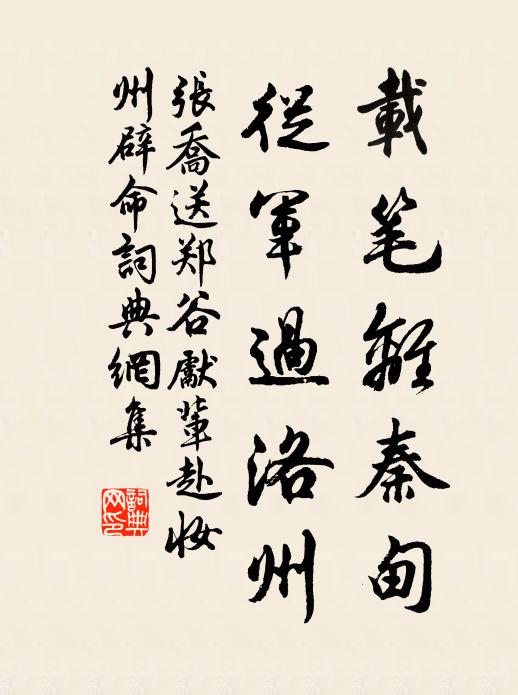 載笔離秦甸
從軍過洛州
張喬送郑谷獻輩赴汝
州辟命詞典網集
詞典网印